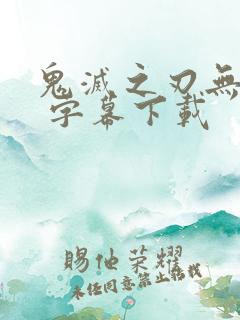 鬼滅之刃無
字幕下載
賜他荣耀
未经同意禁止轉载